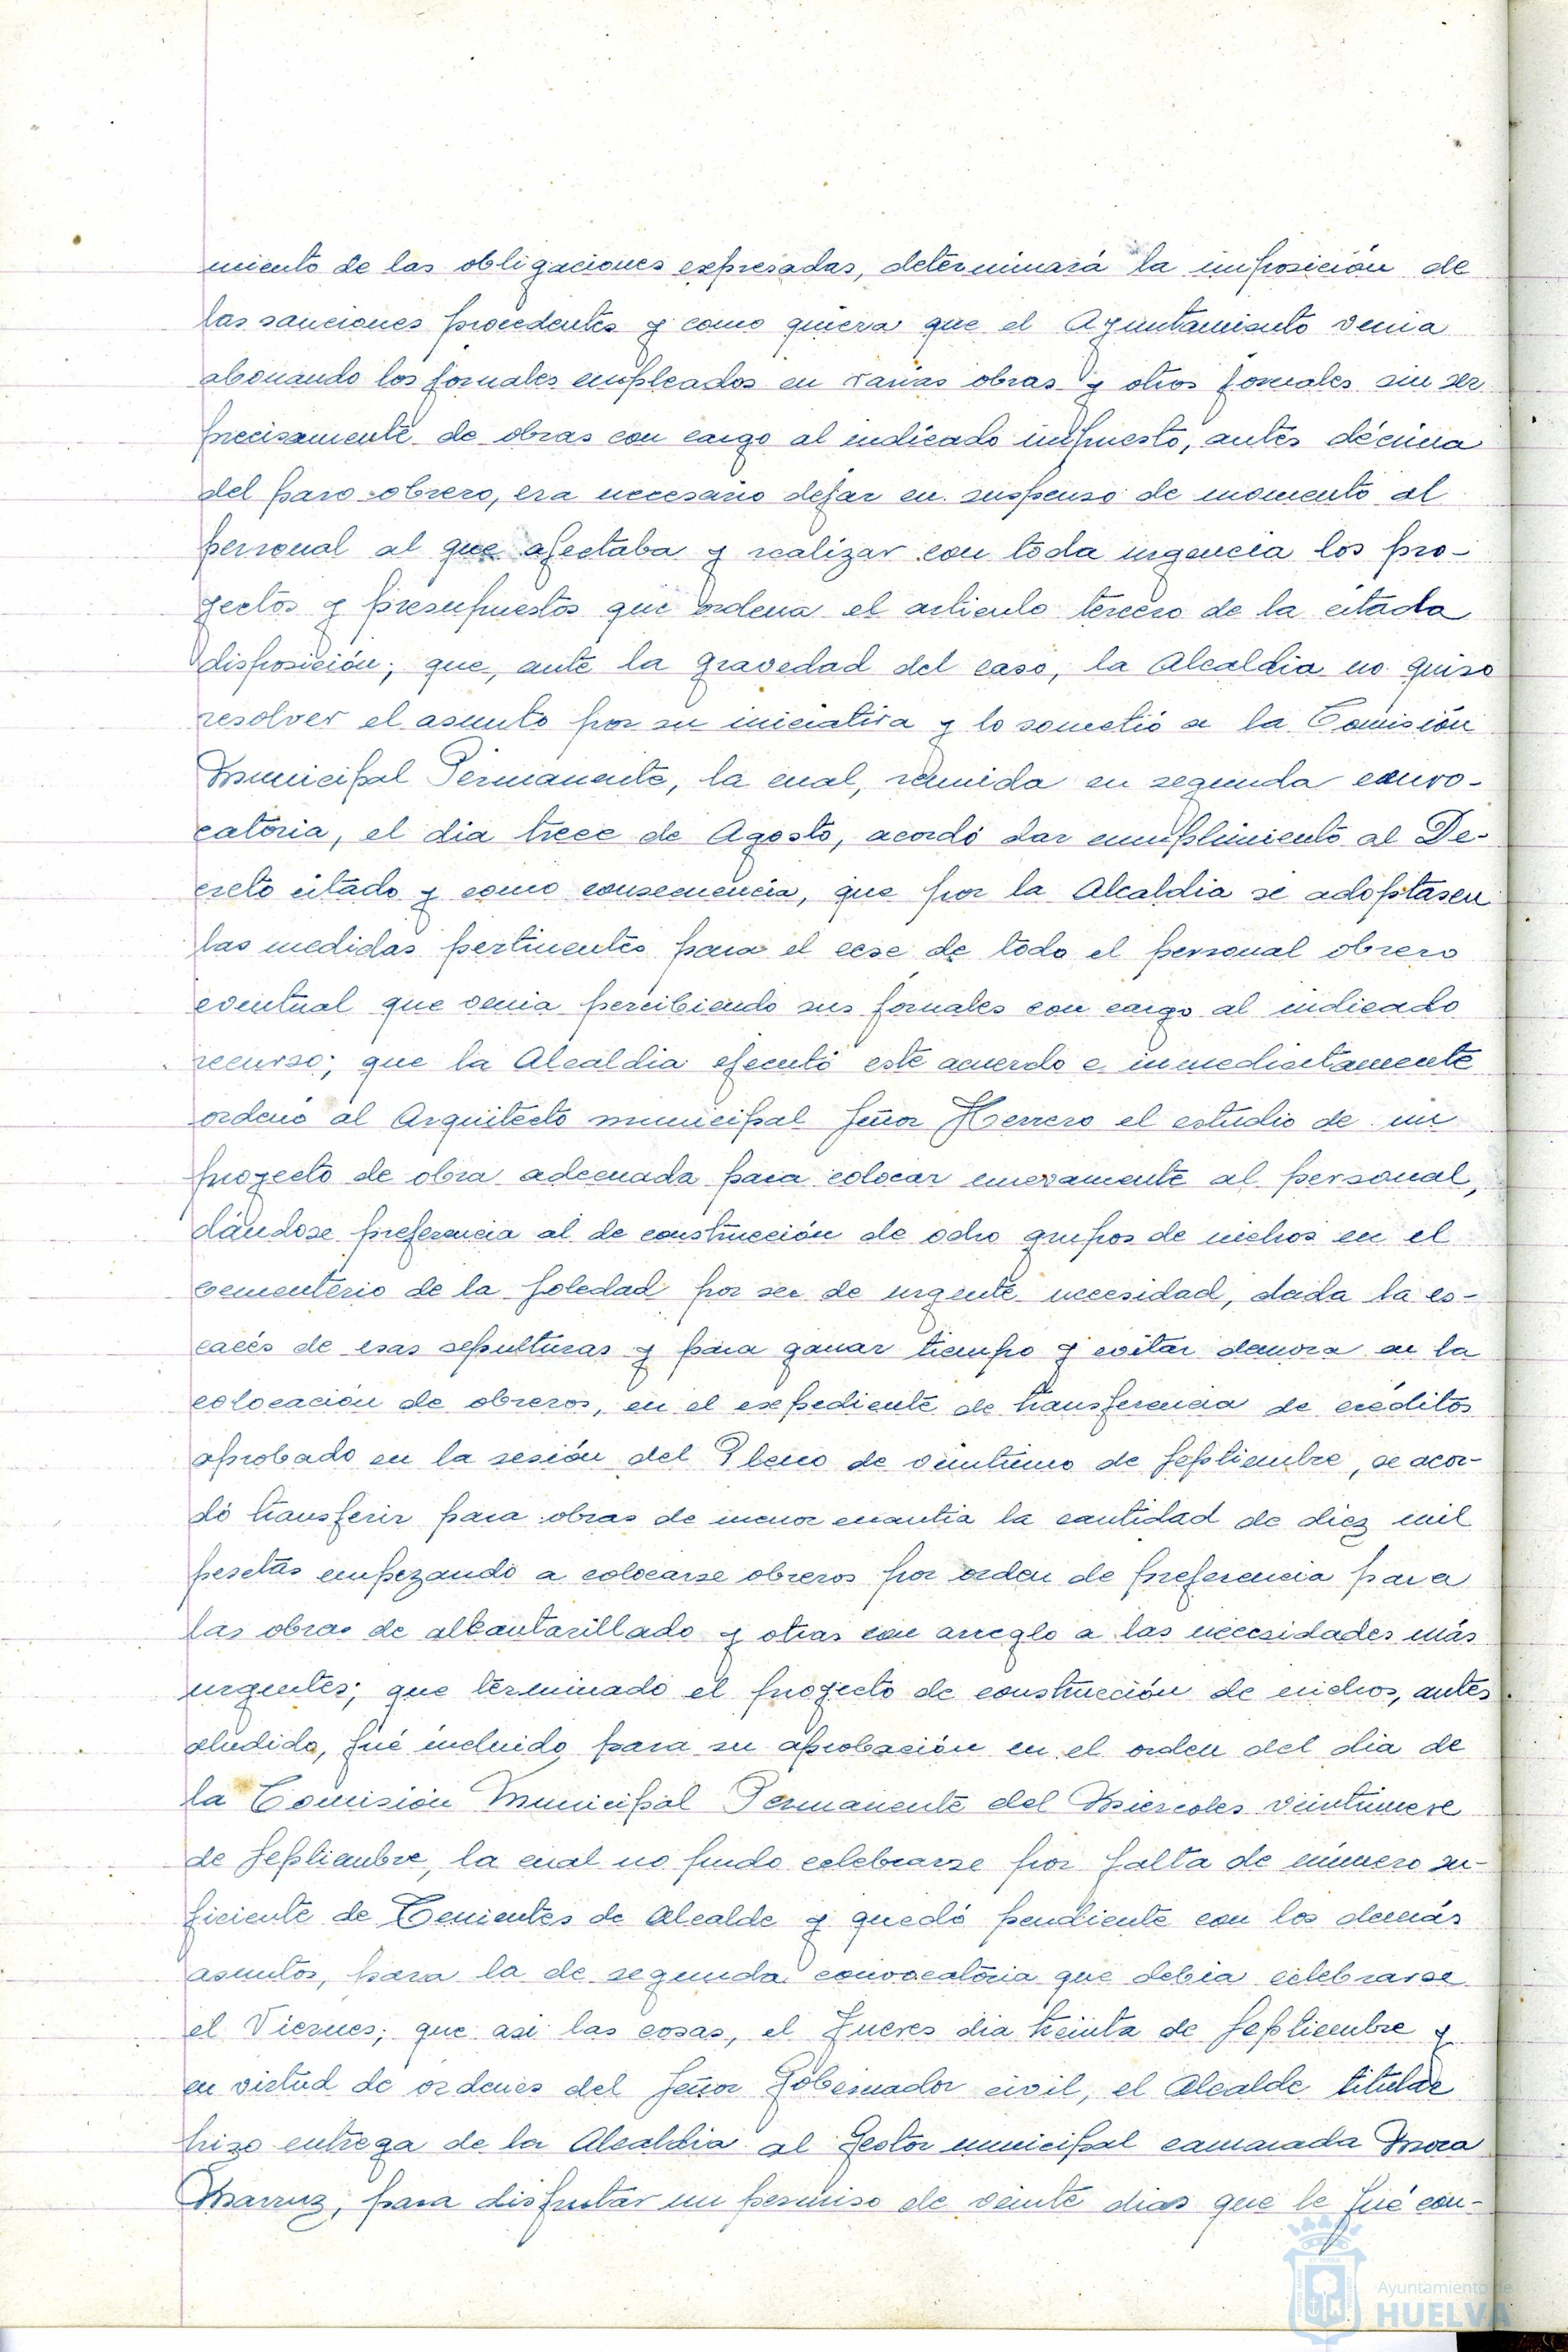 miento de las obligaciones expresadas, determinará la imposición de
las sanciones procedentes y como quiera que el Ayuntamiento venia
abonando los jornales empleados en varias obras y otros jornales sin ser
precisamente de obras con cargo al indicado impuesto, antes décima
del paro obrero, era necesario dejar en suspenso de momento al
personal al que afectaba y realizar con toda urgencia los pro-
yectos y presupuestos que ordena el articulo tercero de la citada
disposición; que, ante la gravedad del caso, la Alcaldia no quiso
resolver el asunto por su iniciativa y lo sometió a la Comisión
Municipal Permanente, la cual, reunida en segunda convo-
catoria, el dia trece de Agosto, acordó dar cumplimiento al De-
creto citado y como consecuencia, que por la Alcaldia se adoptasen
las medidas pertinentes para el cese de todo el personal obrero
eventual que venia percibiendo sus jornales con cargo al indicado
recurso; que la Alcaldia ejecutó este acuerdo e inmediatamente
ordenó al Arquitecto municipal Señor Herrero el estudio de un
proyecto de obra adecuada para colocar nuevamente al personal,
dándose preferencia al de construcción de ocho grupos de nichos en el
cementerio de la Soledad por ser de urgente necesidad, dada la es-
cacés de esas sepulturas y para ganar tiempo y evitar demora en la
colocación de obreros, en el expediente de transferencia de créditos
aprobado en la sesión del Pleno de veintiuno de Septiembre, se acor-
dó transferir para obras de menor cuantia la cantidad de diez mil
pesetas empezando a colocarse obreros por orden de preferencia para
las obras de alcantarillado y otras con arreglo a las necesidades más
urgentes; que terminado el proyecto de construcción de nichos, antes
aludido, fué incluido para su aprobación en el orden del dia de
la Comisión Municipal Permanente del Miercoles veintinueve
de Septiembre, la cual no pudo celebrarse por falta de número su-
ficiente de Tenientes de Alcalde y quedó pendiente con los demás
asuntos, para la de segunda convocatoria que debia celebrarse
el Viernes; que asi las cosas, el Jueves dia treinta de Septiembre y
en virtud de ordenes del Señor Gobernador civil, el Alcalde titular
hizo entrega de la Alcaldia al Gestor municipal camarada Mora
Marruz, para disfrutar un permiso de veinte dias que le fué con-
Ayuntamiento de
HUELVA